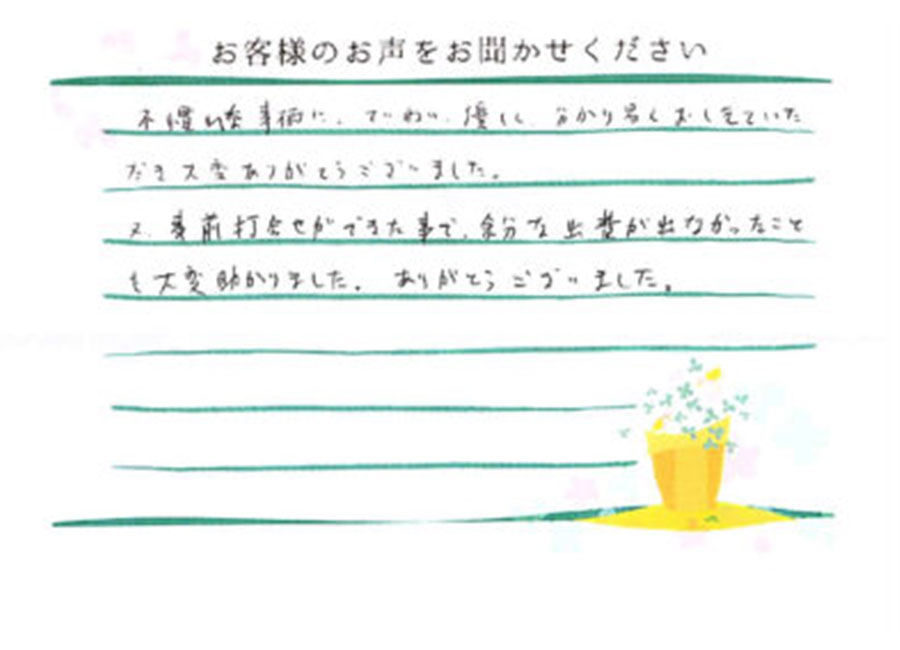 お客様のお声をお聞かせください
不慣れな事柄に、ていねい、優しく、分かり易くおしえていた
だき大変ありがとうございました。
又、事前打合せができた事で、余分な出費が出なかったこと
も大変助かりました。 ありがとうございました。